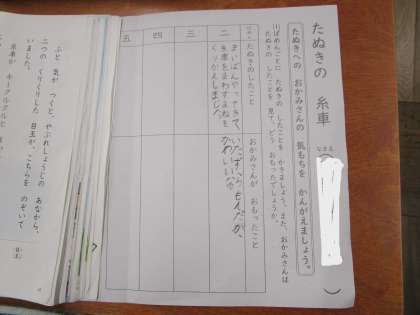 たぬきの 糸車
なまえ
たぬきへの おかみさんの 気もちを かんがえましょう。
川ばめんごとに たぬきの したことを かきましょう。また、おかみさんは
たぬきの したことを 見て、どう おもったでしょうか。
たぬきのしたこと
おかみさんが おもったこと
二
まいばんやってきて、
糸車をまわすまねを
くりかえしました。
いたずらもんだが、
かわいいな。
三
四
五
ふと 気が つくと、やぶれしょうじの あなから、
二つの くりくりした 目玉が、こちらを のぞいて
いました。
糸車が キークルクルと